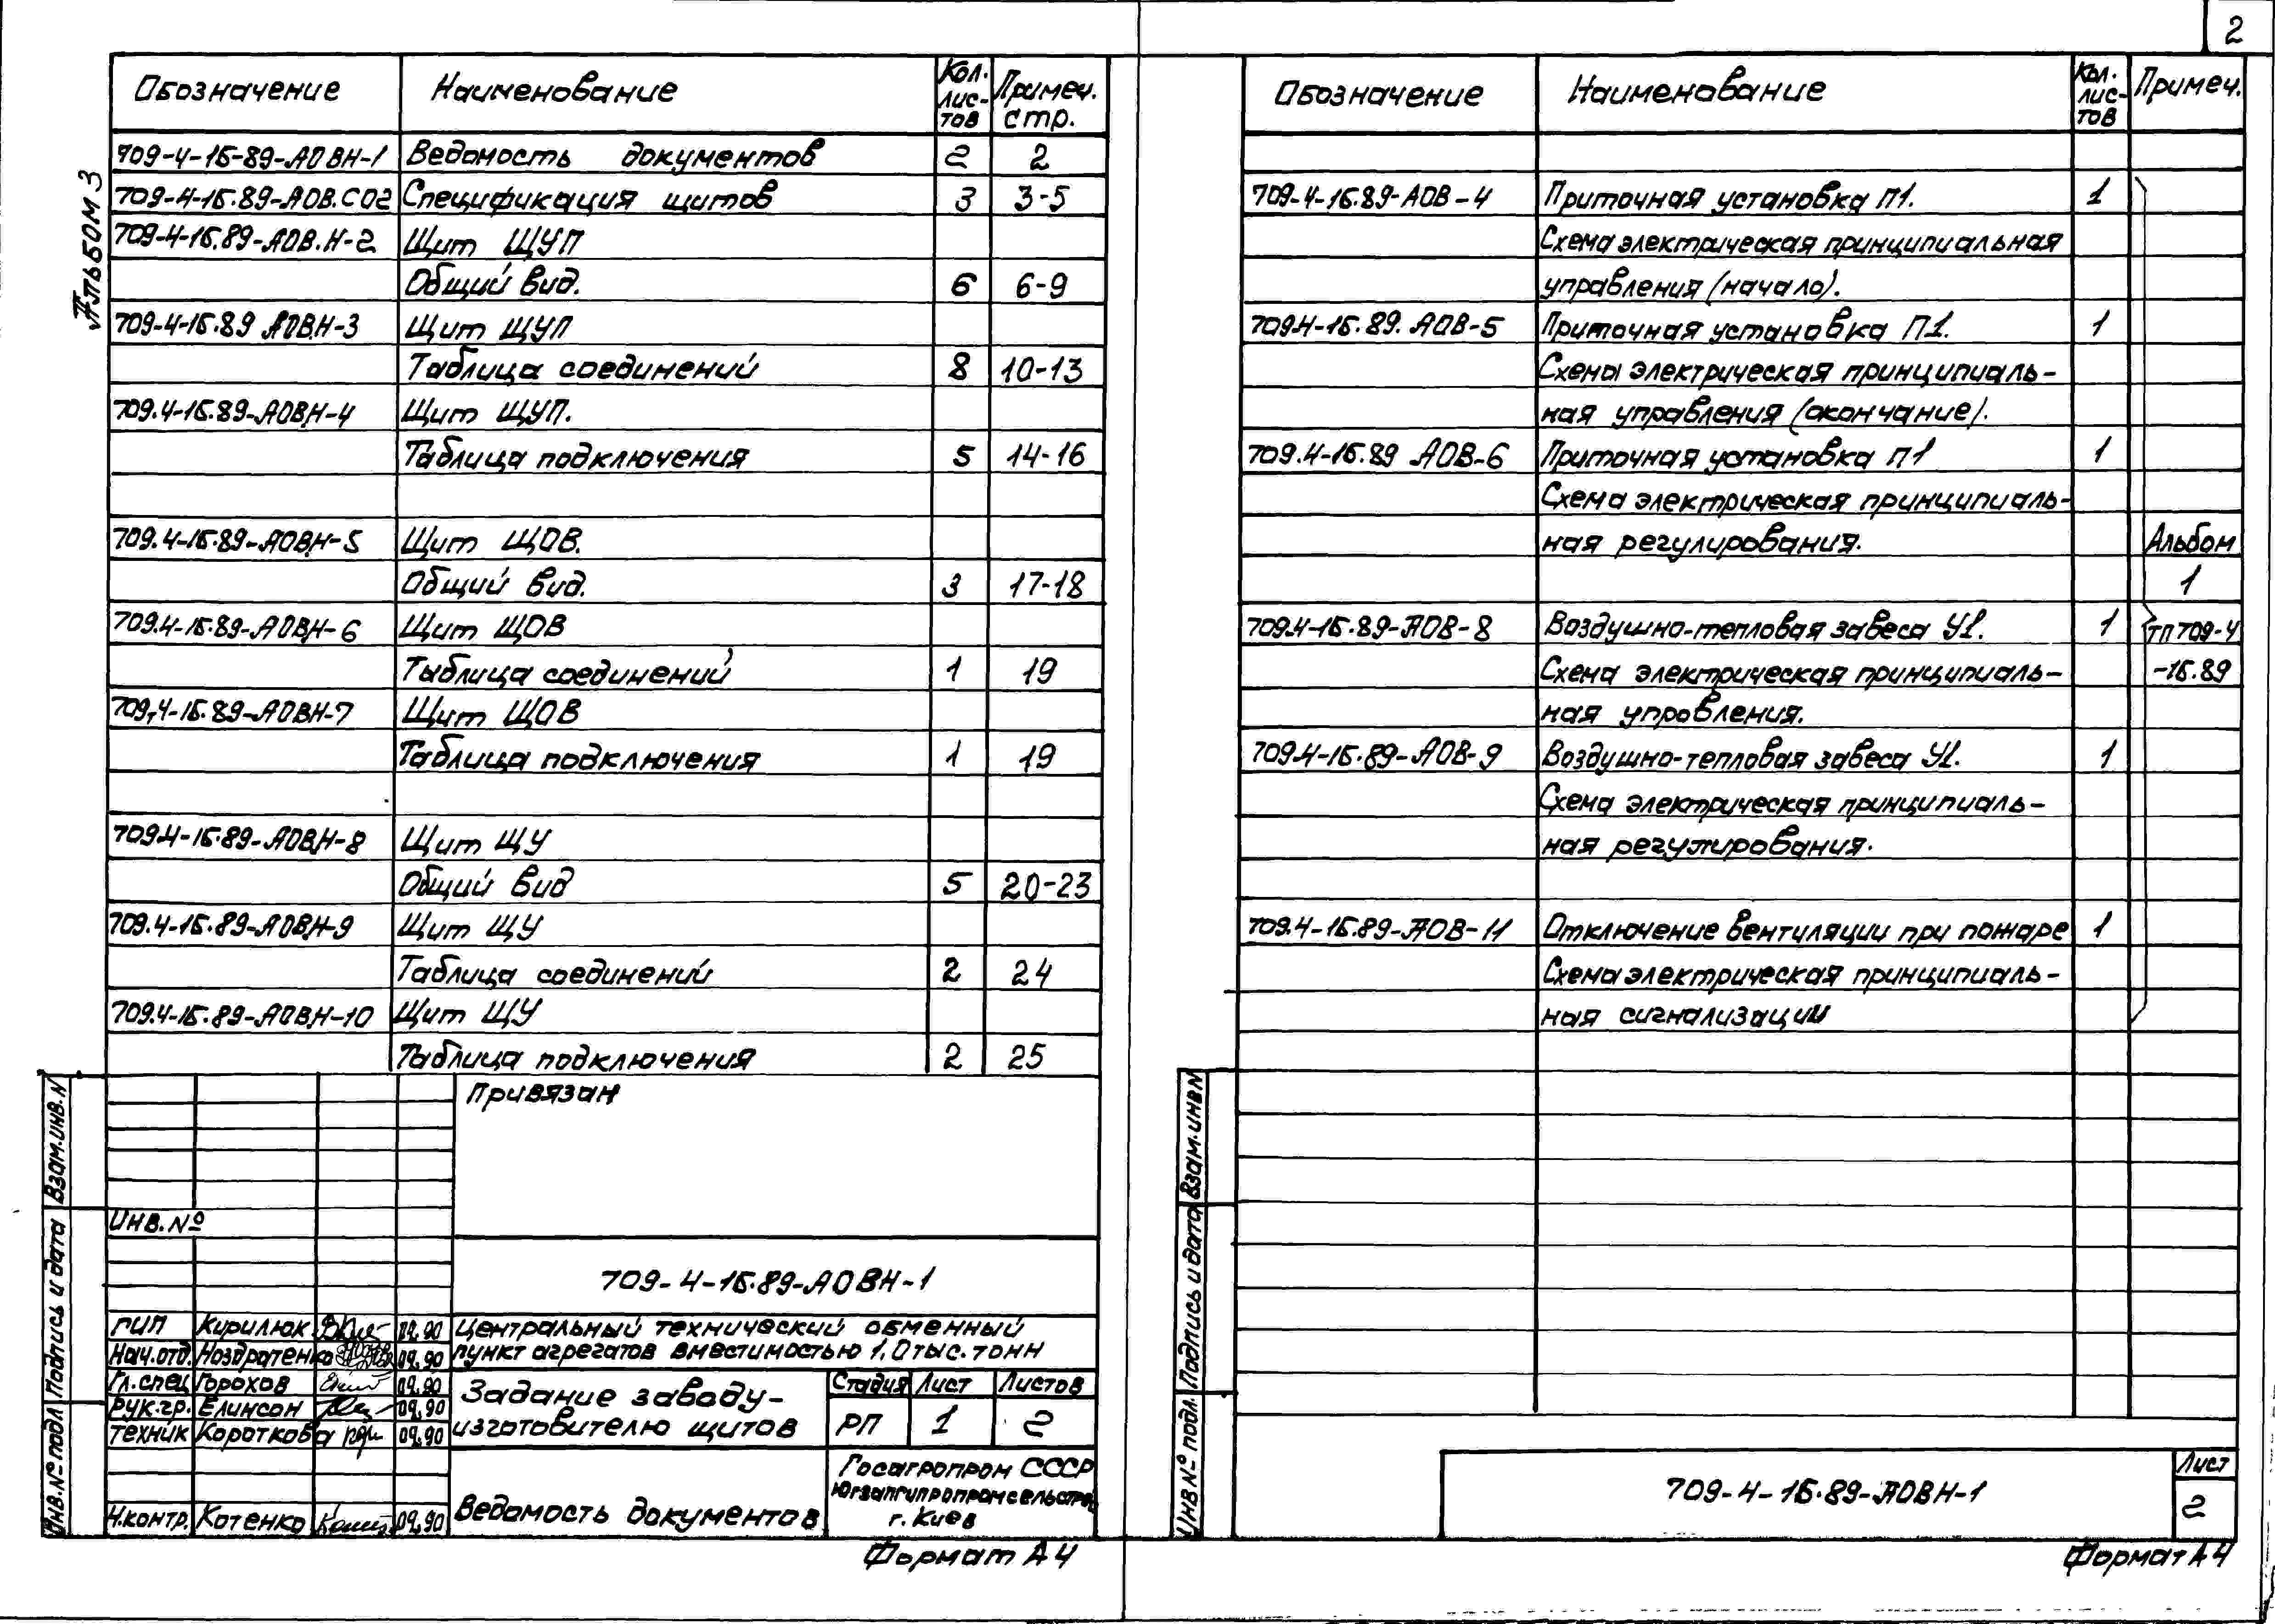 2
Альбом 3
Обозначение Наименование Кол. лис- тов Примеч. стр.
709-4-15-89-АОВН-1 Ведомость документов 2 2
709-4-15.89-АОВ.СО2 Спецификация щитов 3 3-5
709-4-15.89-АОВ.Н-2 Щит ЩУП
Общий вид. 6 6-9
709-4-15.89 АОВ.Н-3 Щит ЩУП
Таблица соединений 8 10-13
709.4-15.89-АОВ.Н-4 Щит ЩУП.
Таблица подключения 5 14-16
709.4-15.89-АОВ.Н-5 Щит ЩОВ.
Общий вид. 3 17-18
709.4-15.89-АОВ.Н-6 Щит ЩОВ
Таблица соединений 1 19
709.4-15.89-АОВ.Н-7 Щит ЩОВ
Таблица подключения 1 19
709.4-15.89-АОВ.Н-8 Щит ЩУ
Общий вид 5 20-23
709.4-15.89-АОВ.Н-9 Щит ЩУ
Таблица соединений 2 24
709.4-15.89-АОВ.Н-10 Щит ЩУ
Таблица подключения 2 25
Привязан
Инв.№
709-4-15.89-АОВН-1
ГИП Кирилюк 09.90
Нач.отд. Ноздратенко 09.90
Гл.спец Горохов 09.90
Рук.гр. Елинсон 09.90
Техник Короткова 09.90
Н.контр. Котенко 09.90
Центральный технический обменный
пункт агрегатов вместимостью 1,0 тыс. тонн
Задание заводу-
изготовителю щитов
Стадия Лист Листов
РП 1 2
Ведомость документов
Госагропром СССР
Югзапгипропромсельстрой
г. Киев
Формат А4
Взам.инв.N
Подпись и дата
Инв.№ подл
Обозначение Наименование Кол. лис- тов Примеч.
709-4-15.89-АОВ-4 Приточная установка П1. 1
Схема электрическая принципиальная
управления (начало).
709.4-15.89. АОВ-5 Приточная установка П1. 1
Схемы электрическая принципиаль-
ная управления (окончание).
709.4-15.89 АОВ-6 Приточная установка П1 1
Схема электрическая принципиаль-
ная регулирования. Альбом
1
709.4-15.89-АОВ-8 Воздушно-тепловая завеса У1. 1 ТП 709-4
Схема электрическая принципиаль- -15.89
ная управления.
709.4-15.89-АОВ-9 Воздушно-тепловая завеса У1. 1
Схема электрическая принципиаль-
ная регулирования.
709.4-15.89-АОВ-11 Отключение вентиляции при пожаре 1
Схема электрическая принципиаль-
ная сигнализации
Взам.инв.N
Подпись и дата
Инв № подл.
709-4-15.89-АОВН-1
Лист
2
Формат А4